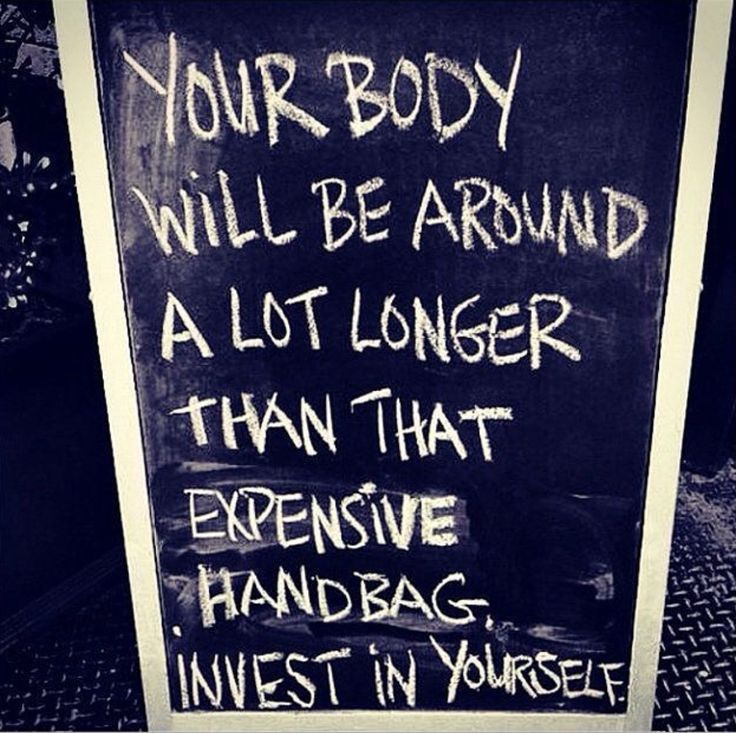 YOUR BODY
WiLL BE AROUND
A LOT LONGER
THAN THAT
EXPENSiVE
HANDBAG.
INVEST iN YOURSELF.